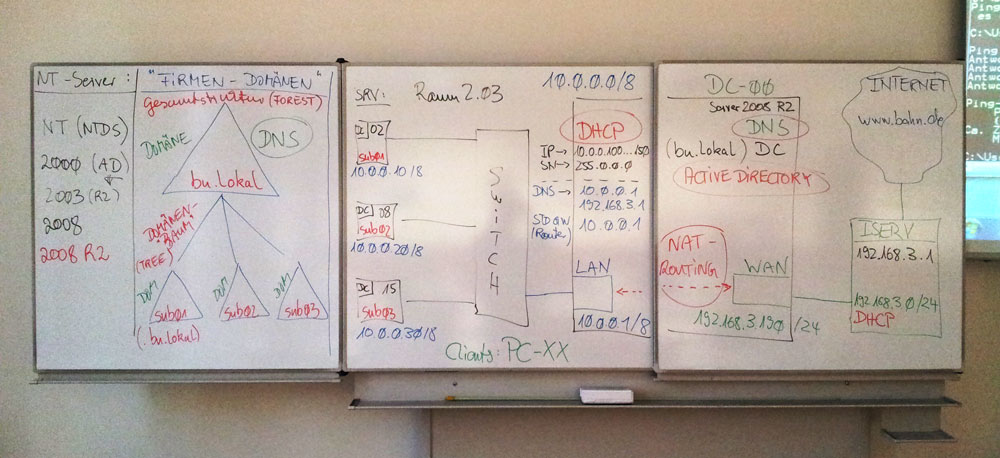 NT-Server:
NT (NTDS)
2000 (AD)
2003 (R2)
2008
2008 R2
"FIRMEN-DOMÄNEN"
Gesamtstruktur (FOREST)
DOMÄNE
DNS
bu.lokal
DOMÄNEN-
BAUM
(TREE)
DOM
sub01
(.bu.lokal)
DOM
sub02
DOM
sub03
SRV:
Raum 2.03
DC 02
sub01
10.0.0.10/8
DC 08
sub02
10.0.0.20/8
DC 15
sub03
10.0.0.30/8
SWITCH
Clients: PC-XX
10.0.0.0/8
DHCP
IP → 10.0.0.100...150
SN → 255.0.0.0
DNS → 10.0.0.1
192.168.3.1
STDGW 10.0.0.1
(Route)
LAN
10.0.0.1/8
DC-00
Server 2008 R2
DNS
(bu.lokal) DC
ACTIVE DIRECTORY
NAT-
ROUTING
WAN
192.168.3.190/24
INTERNET
www.bahn.de
ISERV
192.168.3.1
192.168.3.0/24
DHCP
Ping
es
C:\U
Ping
Antw
Antwo
Antwo
Antwo
Ping
Ca.
C:\Us